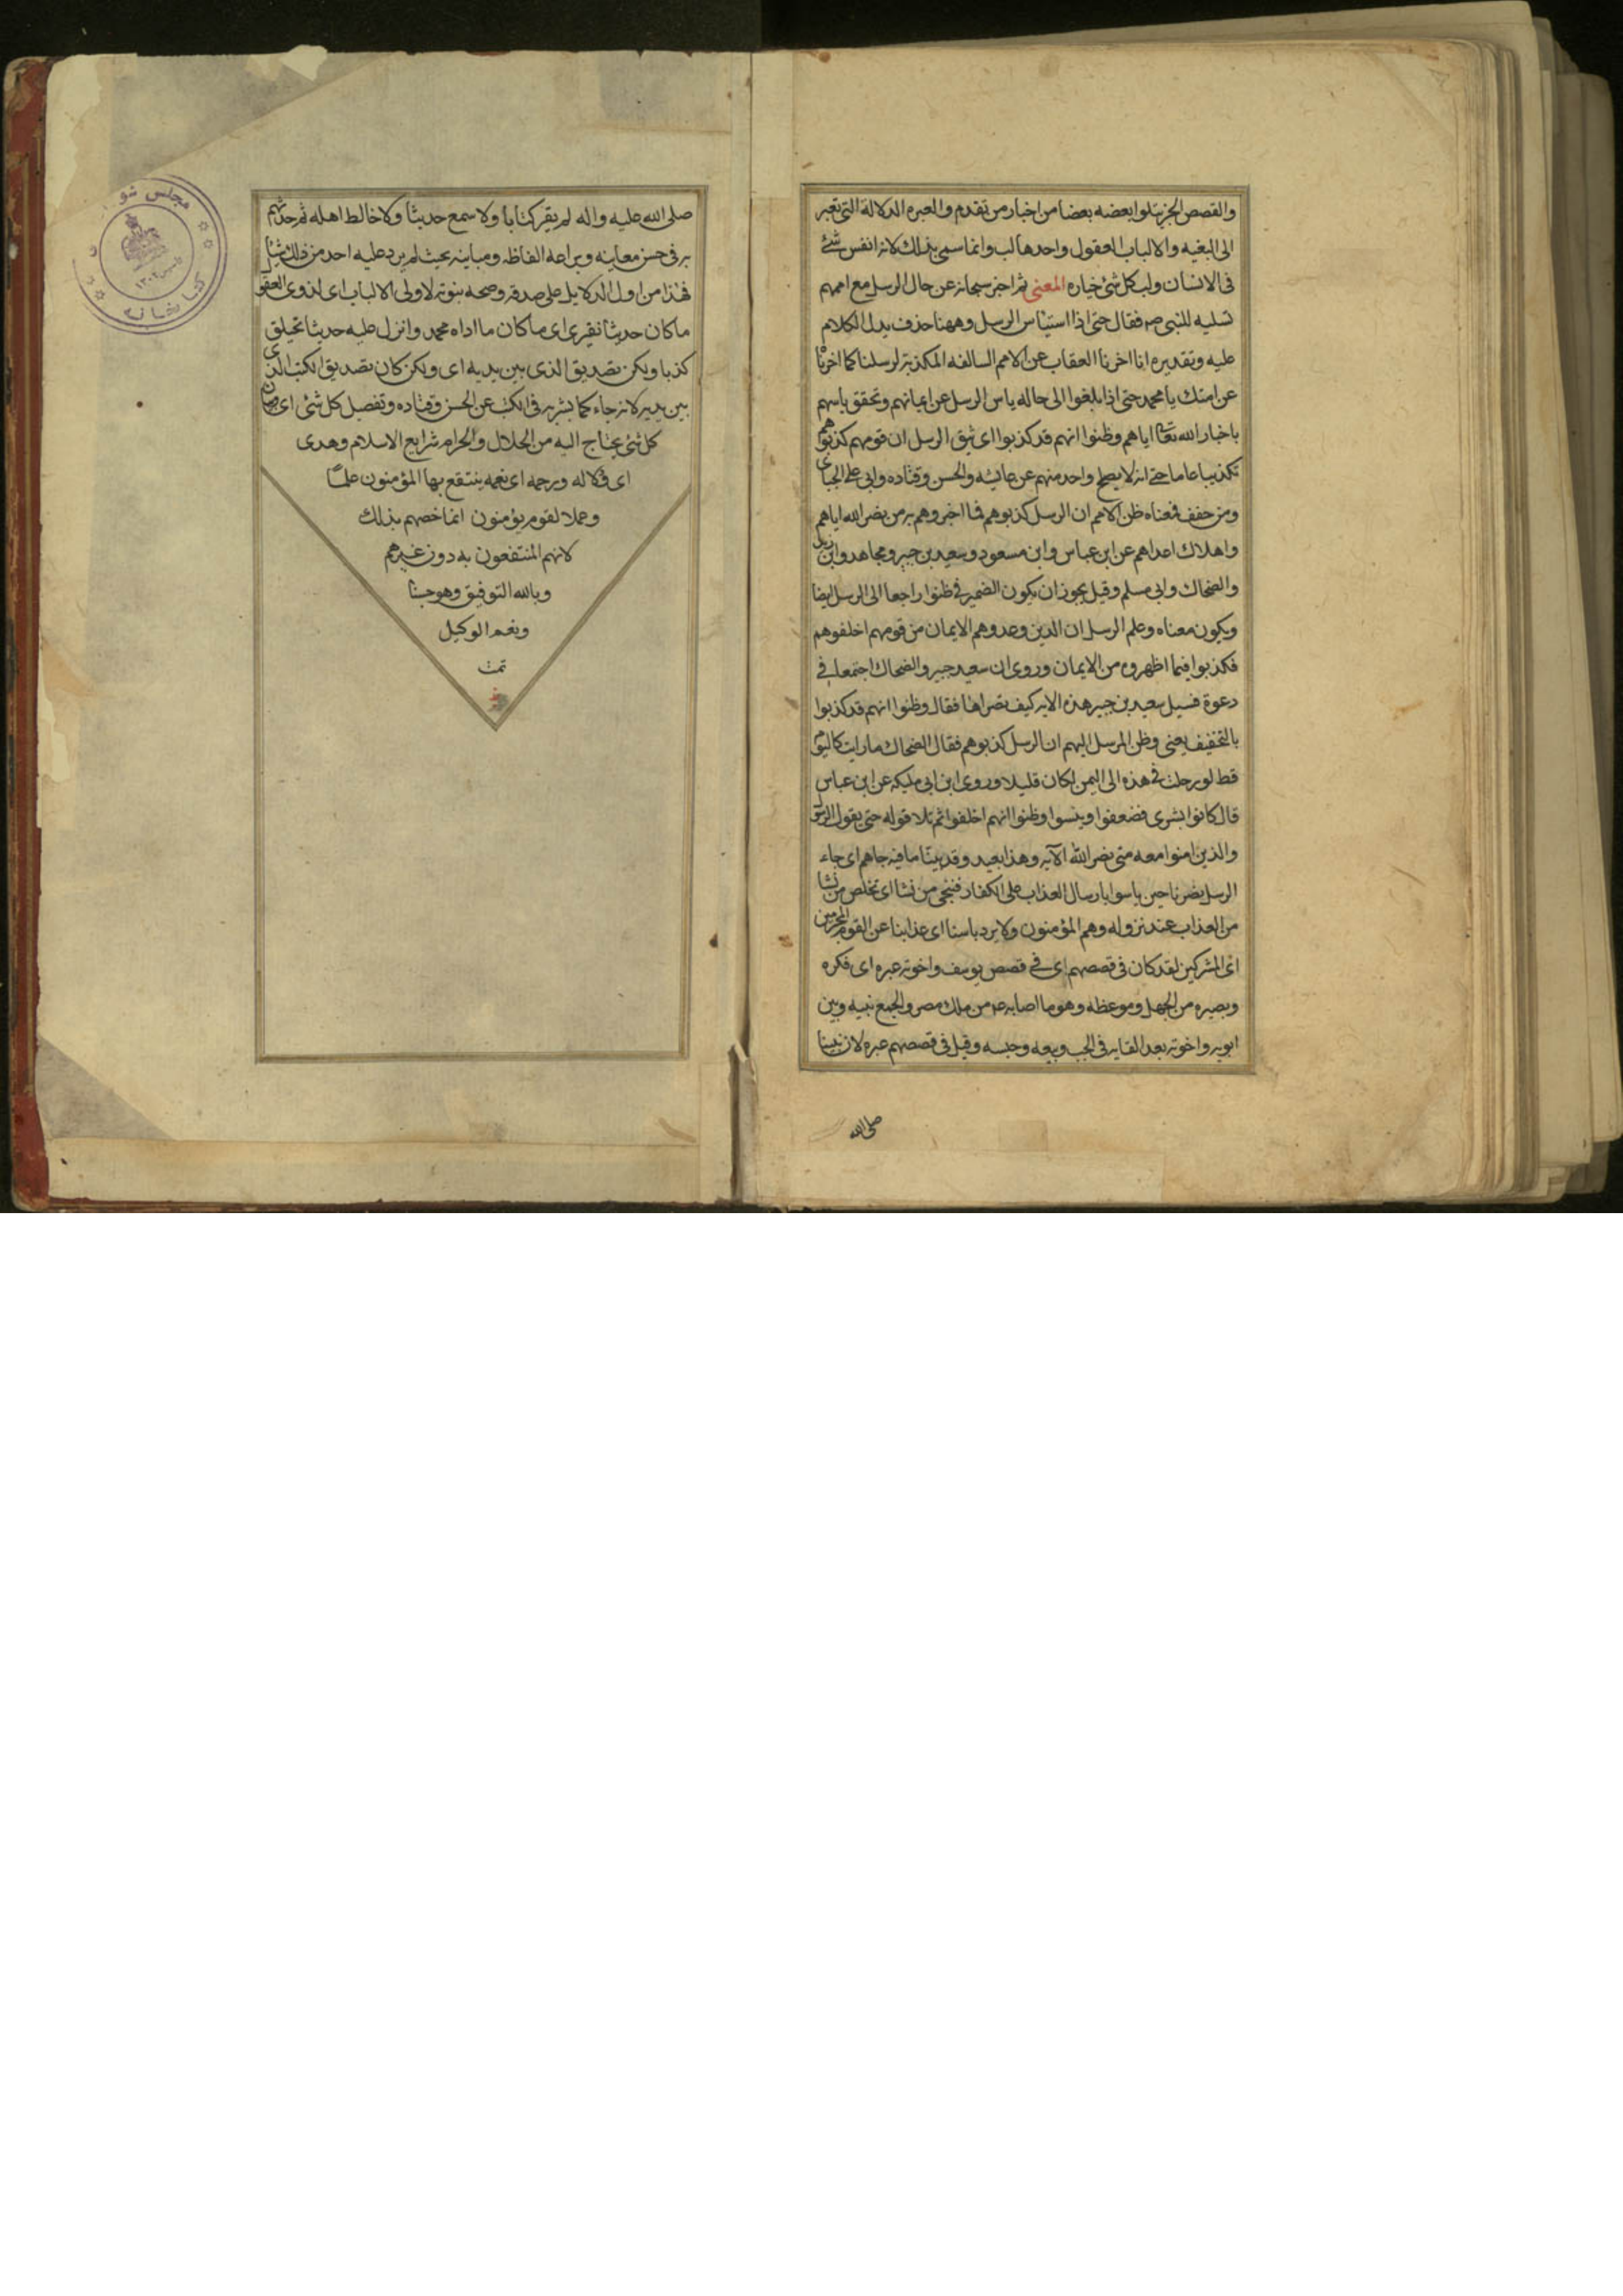 والقصص الخبر يتلوا بعضه بعضا من اخبار من تقدم والعبره الدلالة التي تعبر
الى البغيه والالباب العقول واحدها لب وانما سمى بذلك لانه انفس شئ
فى الانسان ولب كل شئ خياره المعنى ثم اخبر سبحانه عن حال الرسل مع اممهم
تسليه للنبى صم فقال حتى اذا استيئاس الرسل وههنا حذف يدل الكلام
عليه وتقديره انا اخرنا العقاب عن الامم السالفه المكذبة لرسلنا كما اخرنا
عن امتك يا محمد حتى اذا بلغوا الى حاله ياس الرسل عن ايمانهم وتحقق ياسهم
باخبار الله تعالى اياهم وظنوا انهم قد كذبوا اى تيقن الرسل ان قومهم كذبوهم
تكذيبا عاما حتى انه لا يصلح واحد منهم عن عائشه والحسن وقتاده وابى على الجبائى
ومن خفف فمعناه ظن الامم ان الرسل كذبوهم فما اخبروهم به من نصر الله اياهم
واهلاك اعدائهم عن ابن عباس وابن مسعود وسعيد بن جبير ومجاهد وابن زيد
والضحاك وابى مسلم وقيل يجوز ان يكون الضمير فى ظنوا راجعا الى الرسل ايضا
ويكون معناه وعلم الرسل ان الذين وعدوهم الايمان من قومهم اخلفوهم
فكذبوا فيما اظهروه من الايمان وروى ان سعيد جبير والضحاك اجتمعا فى
دعوة فسيل سعيد بن جبير هذه الايه كيف تقراها فقال وظنوا انهم قد كذبوا
بالتخفيف يعنى وظن المرسل اليهم ان الرسل كذبوهم فقال الضحاك ما رايت كاليوم
قط لو رحلت فى هذه الى اليمن لكان قليلا وروى ابن ابى مليكه عن ابن عباس
قال كانوا بشرى فضعفوا ويئسوا وظنوا انهم اخلفوا ثم تلا قوله حتى يقول الرسول
والذين امنوا معه متى نصر الله الآيه وهذا بعيد وقد بينا ما فيه جاهم اى جاء
الرسل نصرنا حين ياسوا بارسال العذاب على الكفار فنجى من نشا اى تخلص من نشا
من العذاب عند نزوله وهم المؤمنون ولا يرد باسنا اى عذابنا عن القوم المجرمين
اى المشركين لقد كان فى قصصهم اى فى قصص يوسف واخوته عبره اى فكره
وبصيره من الجهل وموعظه وهو ما اصابه من ملك مصر والجمع بينه وبين
ابويه واخوته بعد القايه فى الجب وبيعه وحبسه وقيل فى قصصهم عبره لان نبينا
صلى الله
صلى الله عليه واله لم يقر كتابا ولا سمع حديثا ولا خالط اهله ثم حدثهم
به فى حسن معاينه وبراعه الفاظه ومباينه بحيث لم يرد عليه احد من ذلك شيئا
فهذا من اول الدلايل على صدقه وصحه نبوته لاولى الالباب اى لذوى العقول
ما كان حديثا نفيرى اى ما كان ما اداه محمد وانزل عليه حديثا تخيلق
كذبا ولكن تصديق الذى بين يديه اى ولكن كان تصديق الكتب الذى
بين يديه لانه جاء كما بشر به فى الكتب عن الحسن وقتاده وتفصيل كل شئ اى بيان
كل شئ يحتاج اليه من الحلال والحرام شرايع الاسلام وهدى
اى دلاله ورحمه اى نعمه ينتقع بها المؤمنون علما
وعملا لقوم يؤمنون انما خصهم بذلك
لانهم المنتفعون به دون غيرهم
وبالله التوفيق وهو حسبنا
ونعم الوكيل
تمت
مجلس شو
تاسيس ١٣٠٢
كتابخانه